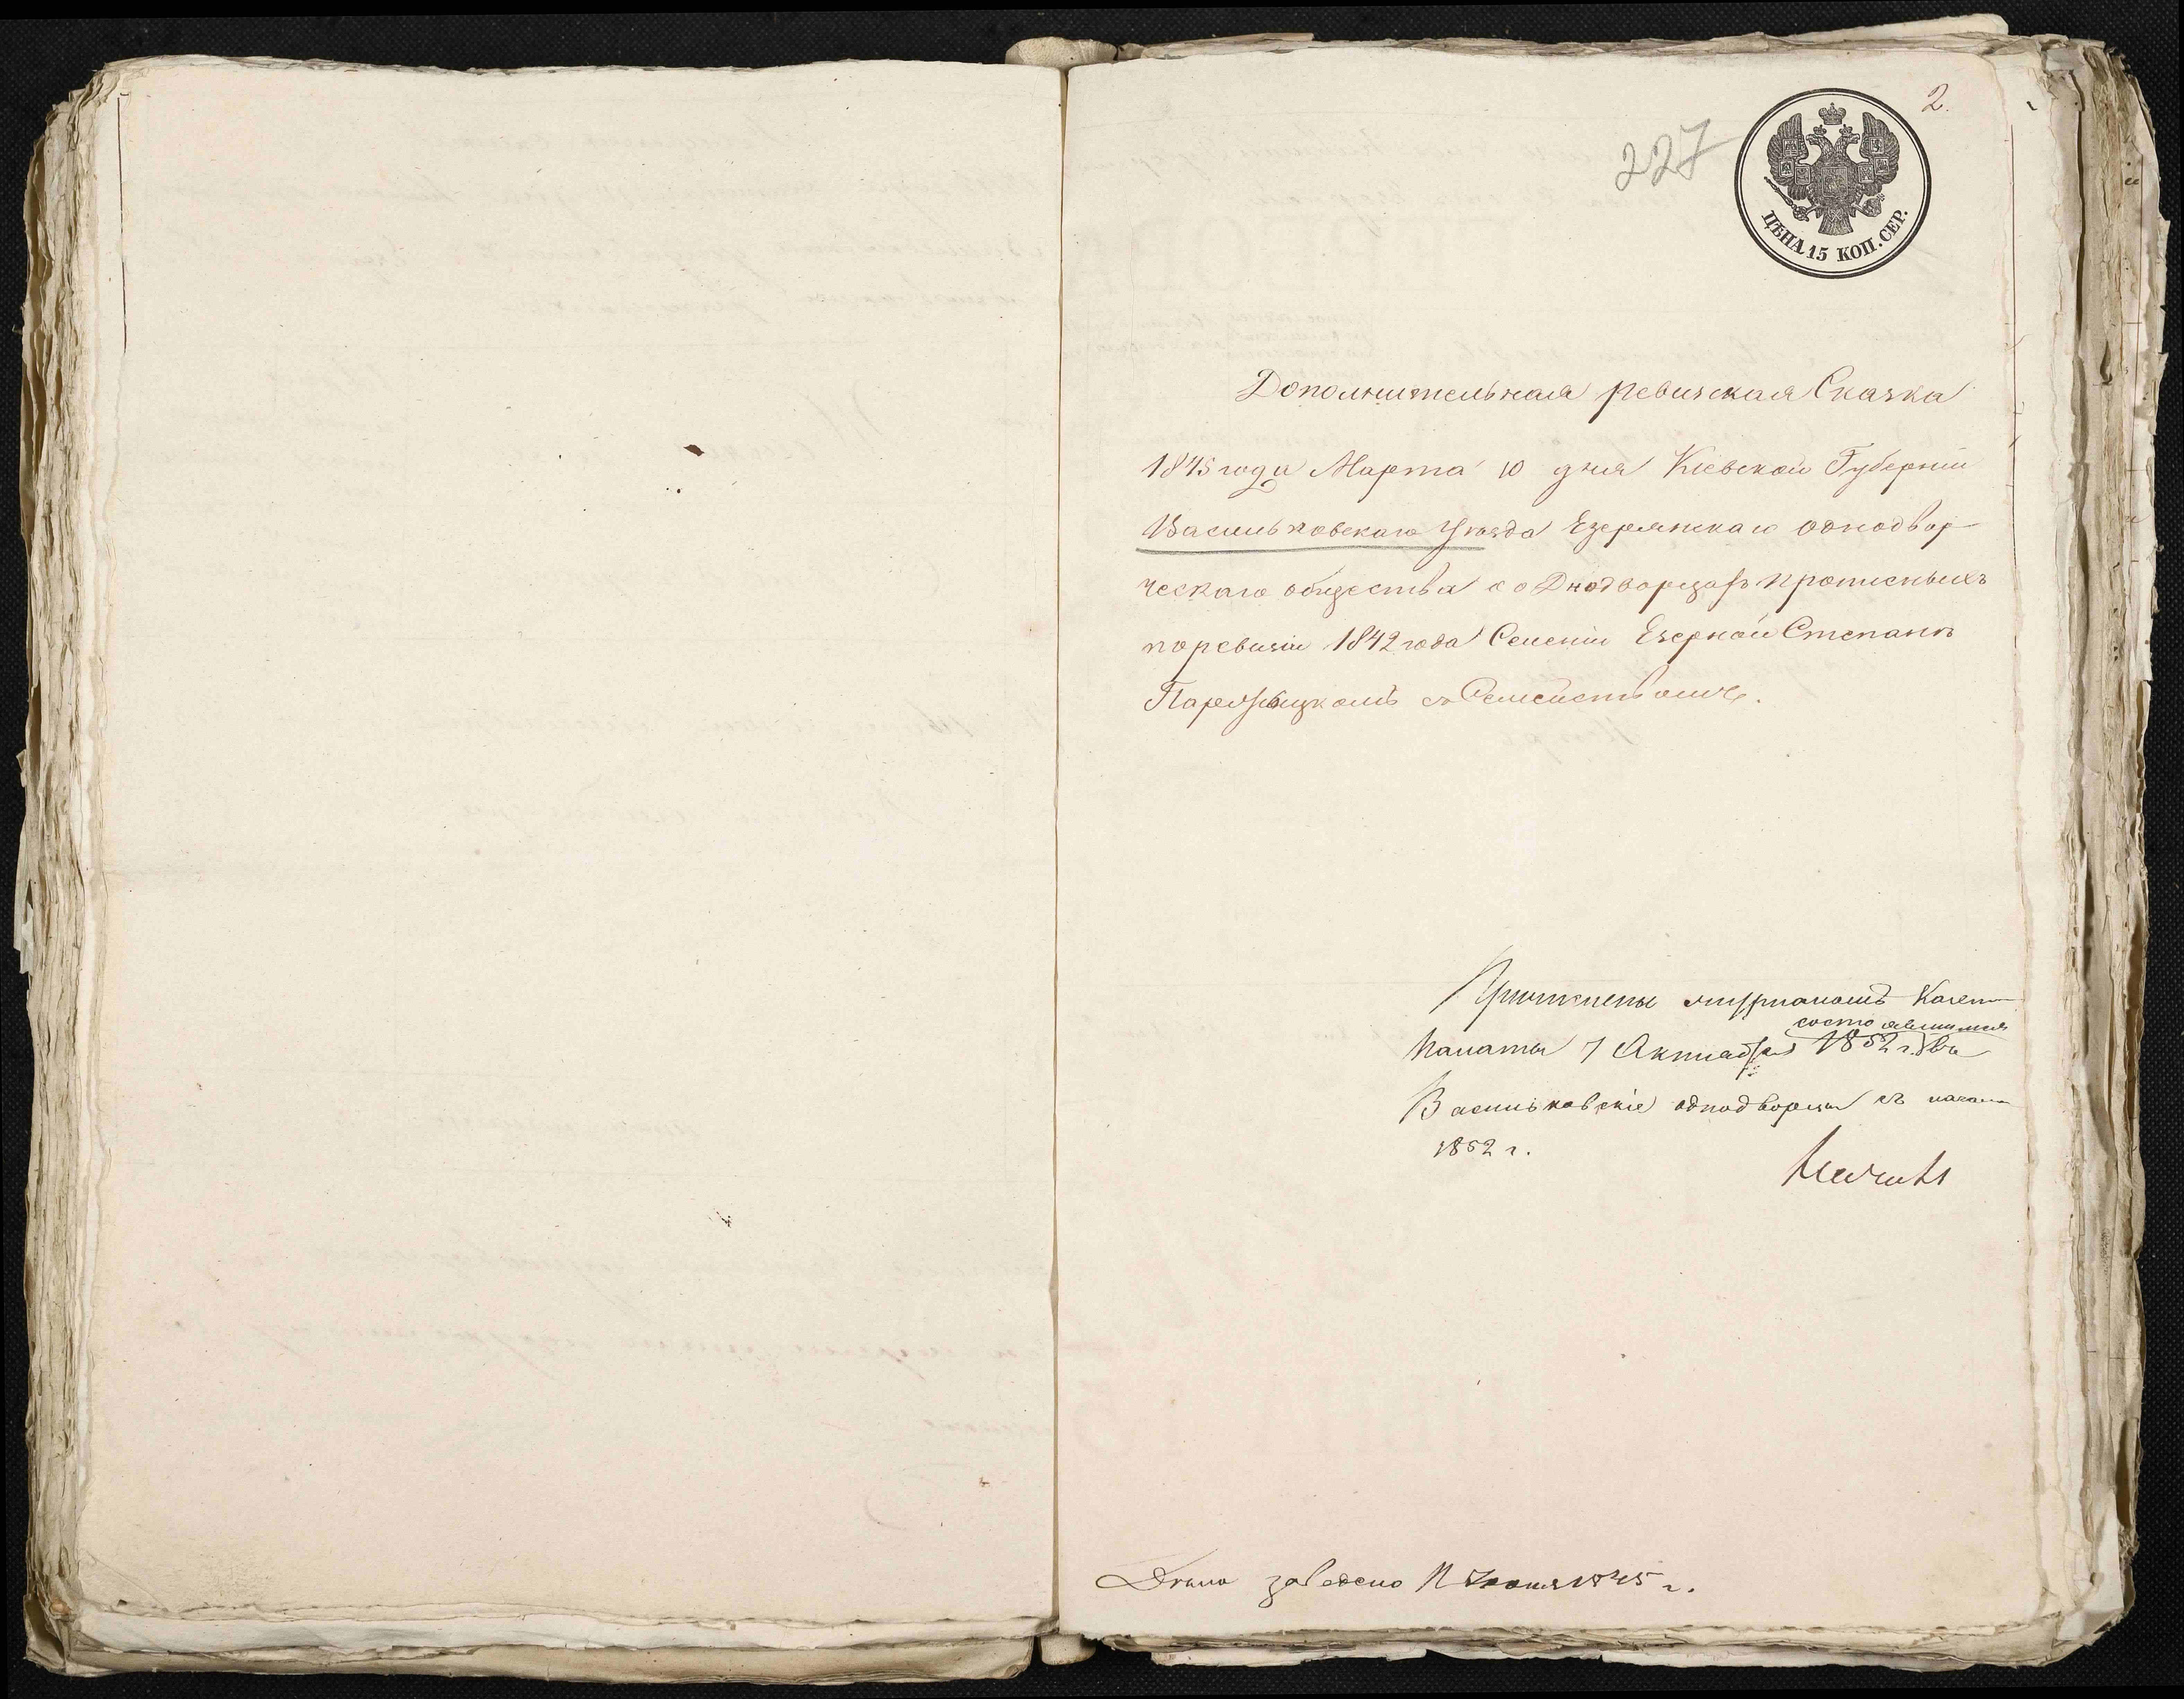 2.
227
ЦѢНА 15 КОП. СЕР.
Дополнительная ревизская Сказка
1845 года Марта 10 дня Кіевской Губерніи
Васильковскаго Уѣзда Езерянскаго однодвор-
ческаго общества о Однодворцахъ прописныхъ
поревизіи 1842 года Селенія Езерной Степанъ
съ Семействомъ.
Причислены журналомъ Казен
состоявшимся
палаты 7 Октября 1852 г. въ
Васильковскіе однодворцы съ начала
1852 г.
Дѣло заведено 11 Іюня 1845 г.